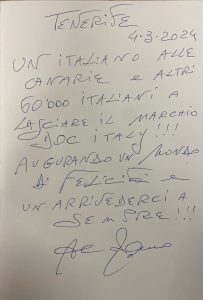 TENERIFE
4.3.2024
UN ITALIANO ALLE
CANARIE E ALTRI
60'000 ITALIANI A
LASCIARE IL MARCHIO
DOC ITALY!!!
AUGURANDO UN MONDO
DI FELICITÀ E
UN ARRIVEDERCI A
SEMPRE!!!